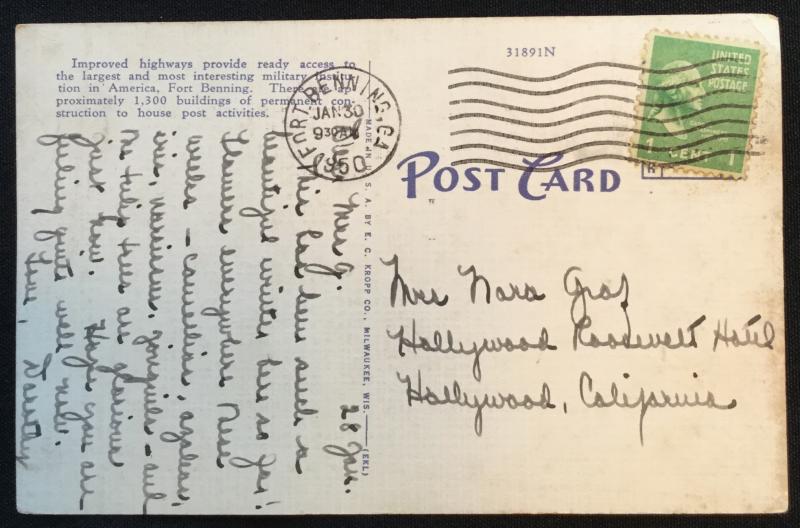 Improved highways provide ready access to
the largest and most interesting military institu-
tion in America, Fort Benning. There are ap-
proximately 1,300 buildings of permanent con-
struction to house post activities.
31891N
UNITED
STATES
POSTAGE
1 CENT 1
FORT BENNING, GA.
JAN 30
930AM
1950
POST CARD
MADE IN U. S. A. BY E. C. KROPP CO., MILWAUKEE, WIS.
(EKL)
28 Jan.
Mrs G.
This has been such a
beautiful winter here so far!
Flowers everywhere these
weeks - camellias, azaleas,
iris, narcissus, jonquils - and
the tulip trees are glorious
just now. Hope you are
feeling quite well now.
Love,
Dorothy
Mrs Nora Graf
Hollywood Roosevelt Hotel
Hollywood, California